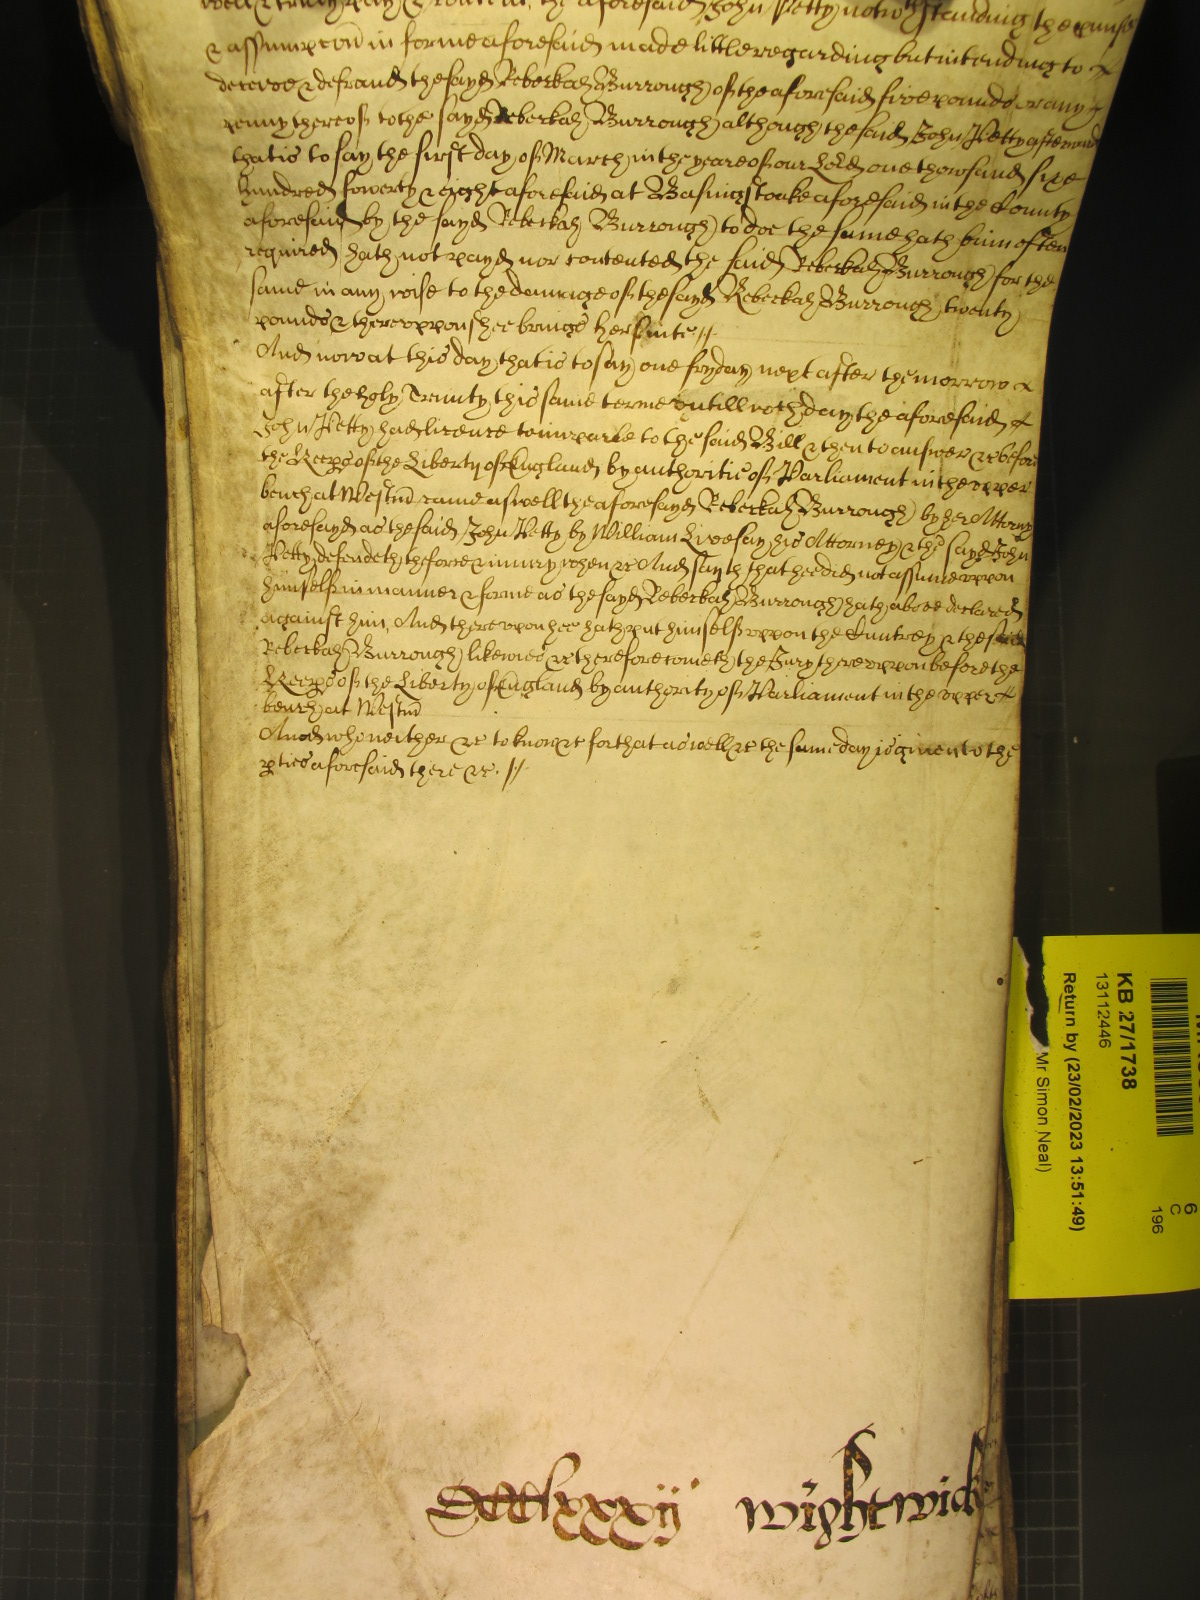 well & truly pay & content, the aforesaid John Petty notwthstanding the
& assumpcon in forme aforesaid made little regarding but intending to
deceive & defraud the sayd Rebeckah Burrough of the aforesaid five pounds or any
penny thereof to the sayd Rebeckah Burrough although the said John Petty afterward
that is to say the first day of March in the yeare of our Lord one thowsand sixe
hundred fowerty & eight aforesaid at Basingstoake aforesaid in the County
aforesaid by the sayd Rebeckah Burrough to doe the same hath binn often
required hath not payd nor contented the said Rebeckah Burrough for the
same in any wise to the damage of the sayd Rebeckah Burrough twenty
pounds & thereuppon shee brings her suite //
And now at this day that is to say one fryday next after the morrow
after the holy Trinity this same terme untill wch day the aforesaid
John Petty had licence to imparle to the said Bill & then to answer &c before
the Keeps of the Liberty of England by authoritie of Parliament in the upper
bench at Westmr came aswell the aforesayd Rebeckah Burrough by her Attorny
aforesayd as the said John Petty by William Livesay his Attorney & the sayd John
Petty defendeth the force & iniury when &c And sayth that hee did not assume uppon
himself in manner & forme as the sayd Rebeckah Burrough hath above declared
against him, And thereuppon hee hath put himself uppon the Cuntrey & the said
Rebeckah Burrough likewies &c therefore cometh the Jury thereuppon before the
Keeps of the Liberty of England by authority of Parliament in the upper
bench at Westmr
And who neither &c to know &c for that aswell &c the same day is given to the
pties aforesaid there &c. //
wightwick
KB 27/1738
13112446
Return by (23/02/2023 13:51:49)
Mr Simon Neal)
6
C
196